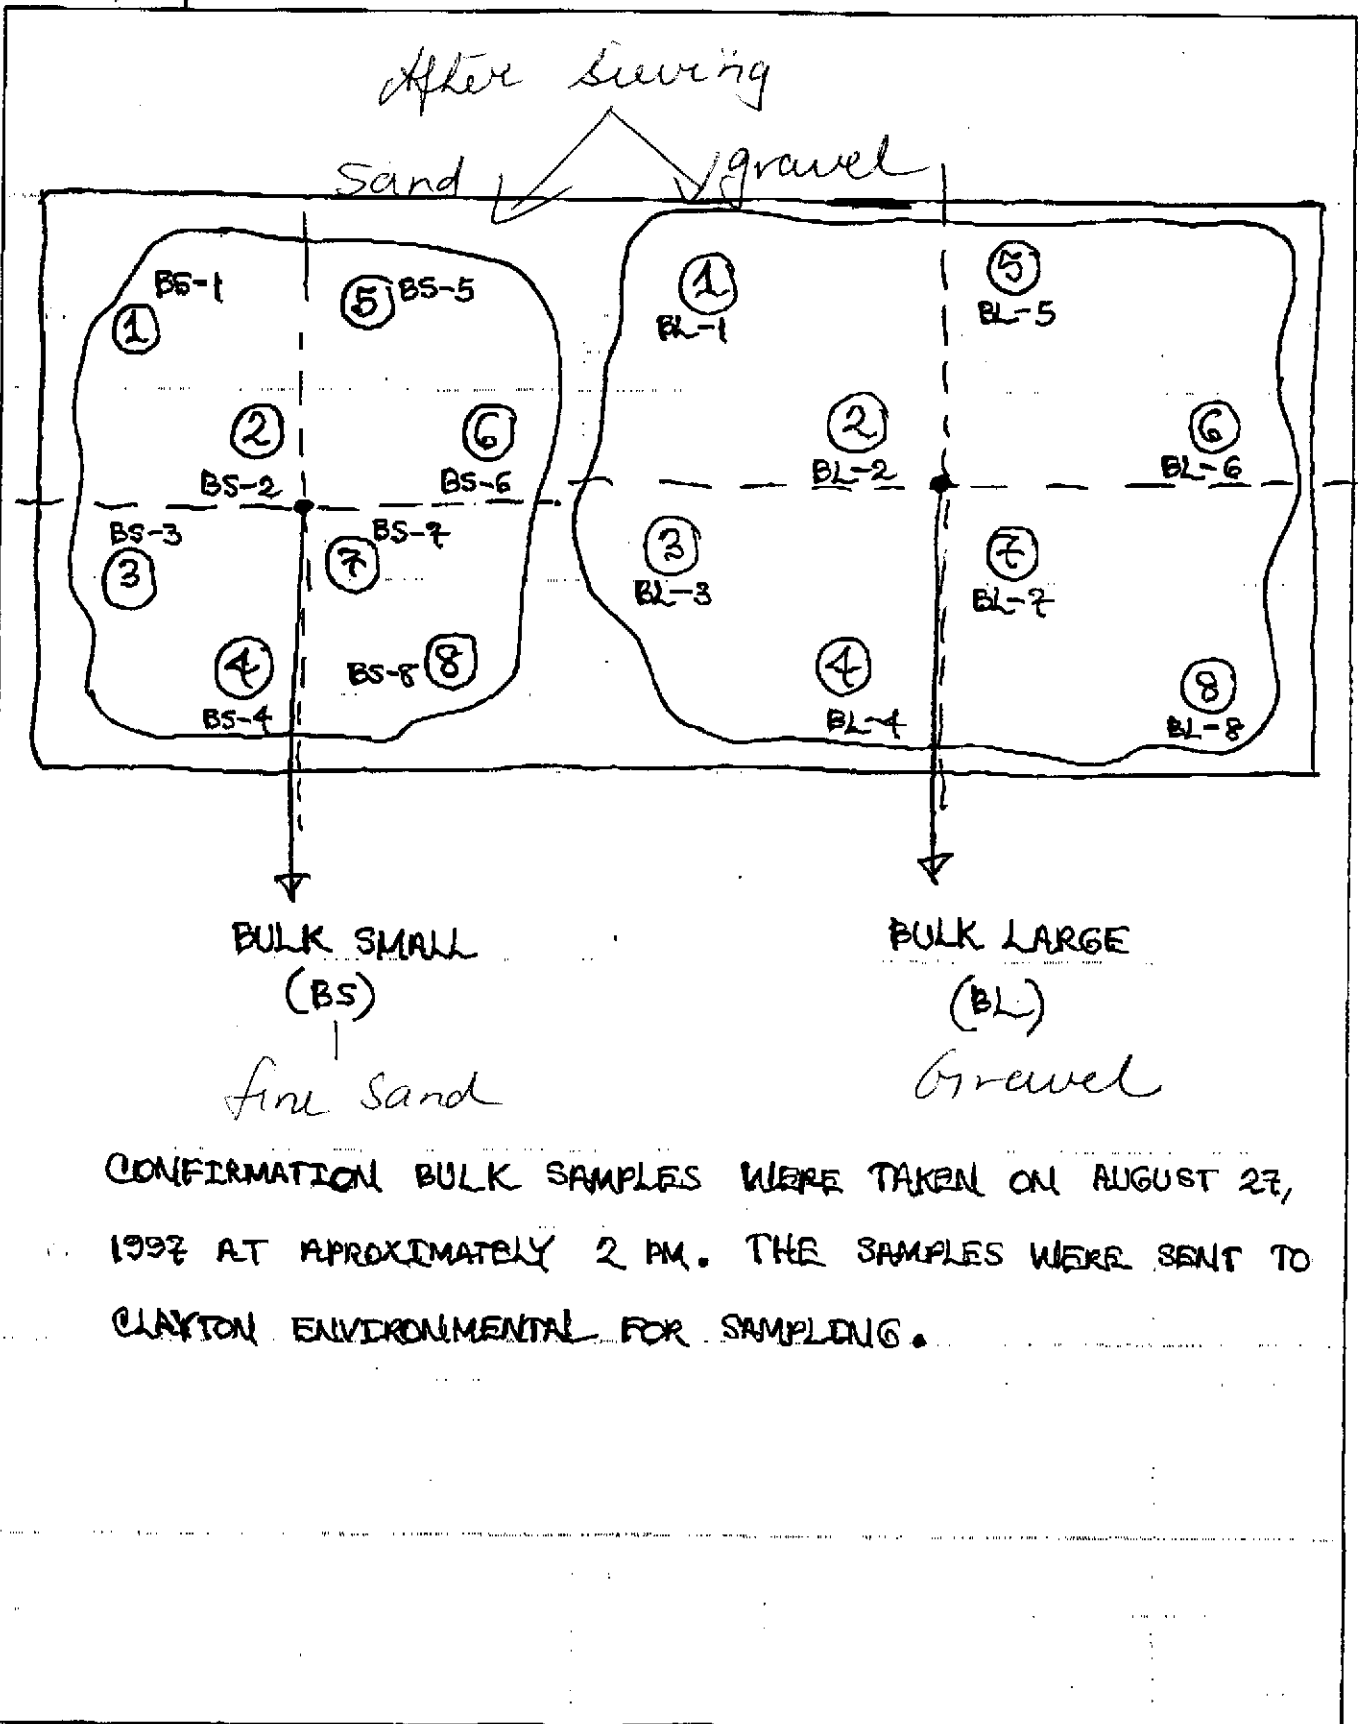 After Sieving
Sand gravel
BS-1 BS-5
1 5
1 5
BL-1 BL-5
2 6
BS-2 BS-6
2 6
BL-2 BL-6
BS-3 BS-7
3 7
3 7
BL-3 BL-7
4 BS-8 8
BS-4
4 8
BL-4 BL-8
BULK SMALL
(BS)
fine Sand
BULK LARGE
(BL)
Gravel
CONFIRMATION BULK SAMPLES WERE TAKEN ON AUGUST 27,
1997 AT APROXIMATELY 2 PM. THE SAMPLES WERE SENT TO
CLAYTON ENVIRONMENTAL FOR SAMPLING.